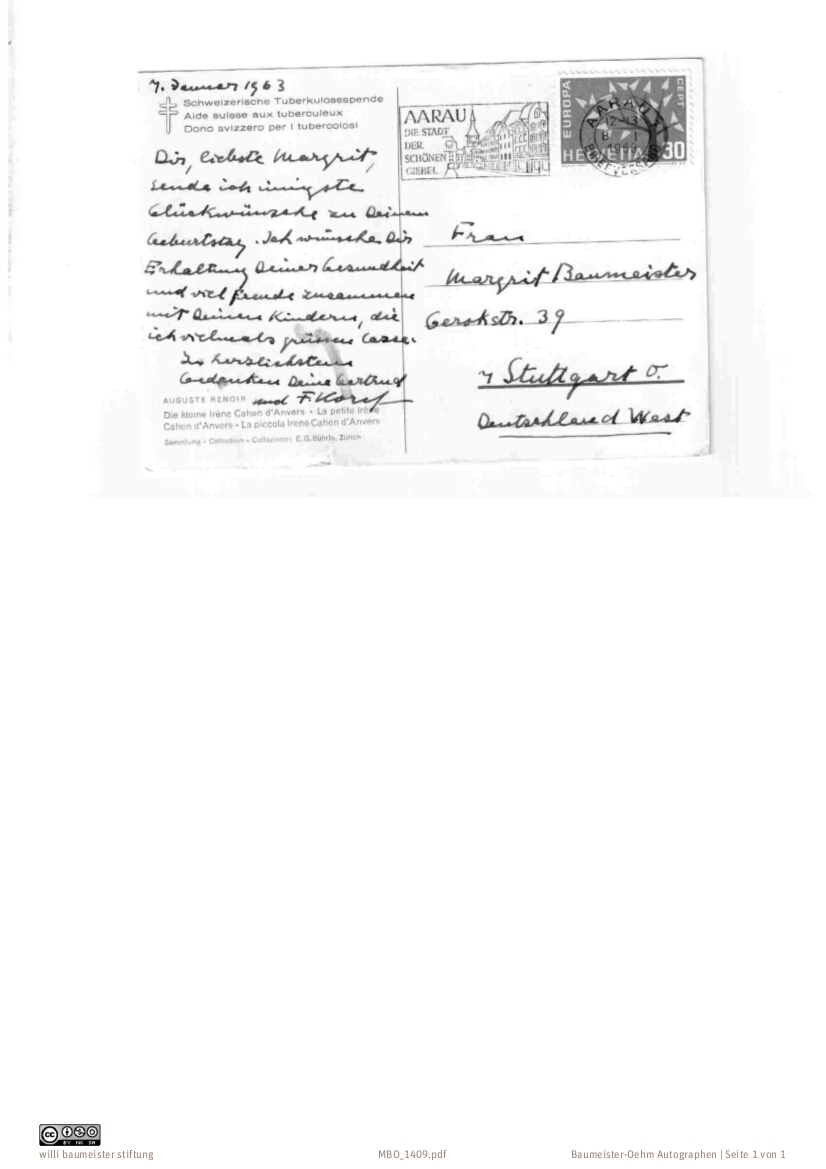 7. Januar 1963
Schweizerische Tuberkulosespende
Aide suisse aux tuberculeux
Dono svizzero per i tubercolosi
Dir, liebste Margrit,
sende ich innigste
Glückwünsche zu Deinem
Geburtstag. Ich wünsche Dir
Erhaltung Deiner Gesundheit
und viel Freude zusammen
mit Deinen Kindern, die
ich vielmals grüssen lasse.
In herzlichstem
Gedenken Deine Gertrud
und F. Korf
AUGUSTE RENOIR
Die kleine Irène Cahen d'Anvers • La petite Irène
Cahen d'Anvers • La piccola Irene Cahen d'Anvers
Sammlung • Collection • Collezione: E. G. Bührle, Zürich
AARAU
DIE STADT
DER
SCHÖNEN
GIEBEL
EUROPA
CEPT
HELVETIA 30
AARAU 1
12-13
8. I
1963
Frau
Margrit Baumeister
Gerokstr. 39
7 Stuttgart O.
Deutschland West
CC BY NC SA
willi baumeister stiftung
MBO_1409.pdf
Baumeister-Oehm Autographen | Seite 1 von 1